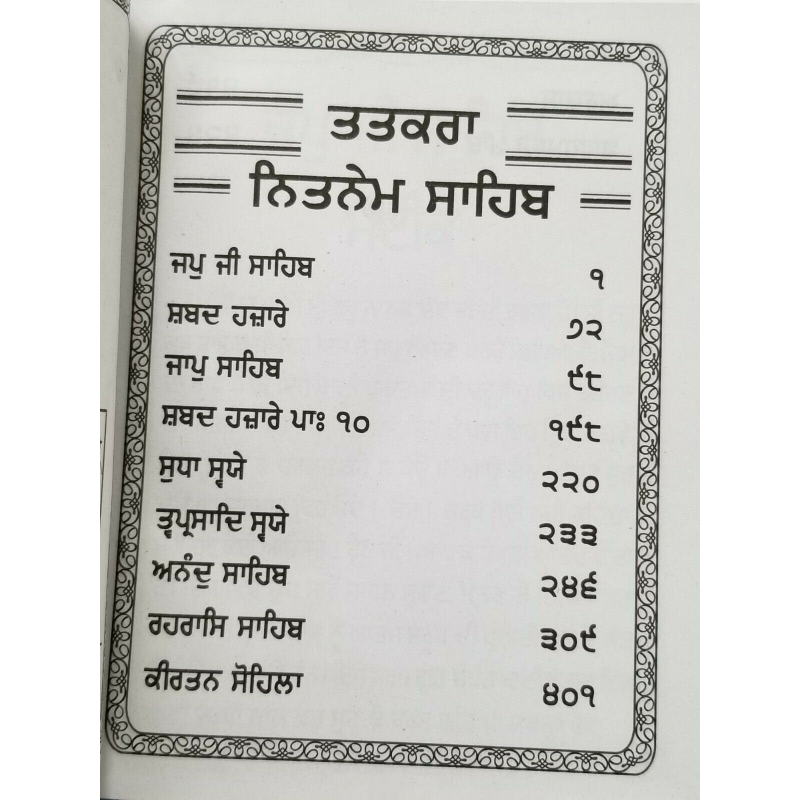 ਤਤਕਰਾ
ਨਿਤਨੇਮ ਸਾਹਿਬ
ਜਪੁ ਜੀ ਸਾਹਿਬ ੧
ਸ਼ਬਦ ਹਜ਼ਾਰੇ ੭੨
ਜਾਪੁ ਸਾਹਿਬ ੯੮
ਸ਼ਬਦ ਹਜ਼ਾਰੇ ਪਾਃ ੧੦ ੧੯੮
ਸੁਧਾ ਸ੍ਵਯੇ ੨੨੦
ਤ੍ਵਪ੍ਰਸਾਦਿ ਸ੍ਵਯੇ ੨੩੩
ਅਨੰਦੁ ਸਾਹਿਬ ੨੪੬
ਰਹਰਾਸਿ ਸਾਹਿਬ ੩੦੯
ਕੀਰਤਨ ਸੋਹਿਲਾ ੪੦੧